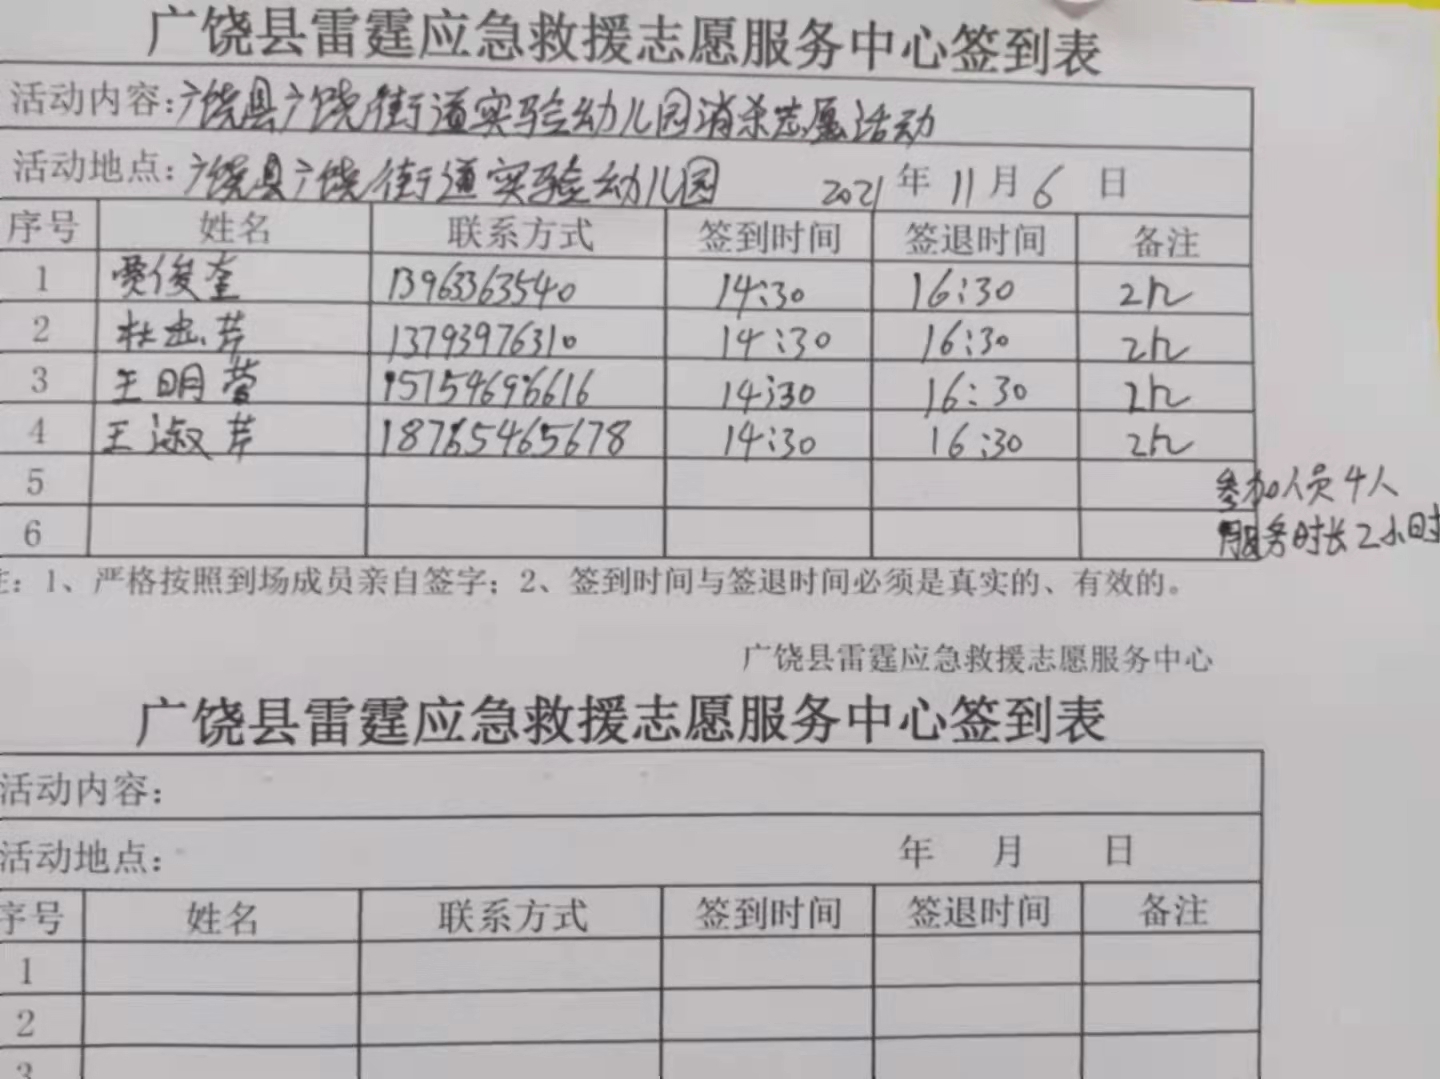 广饶县雷霆应急救援志愿服务中心签到表
活动内容:广饶县广饶街道实验幼儿园消杀志愿活动
活动地点:广饶县广饶街道实验幼儿园 2021 年 11 月 6 日
序号 姓名 联系方式 签到时间 签退时间 备注
1 贾俊奎 13963363540 14:30 16:30 2h
2 13793976310 14:30 16:30 2h
3 王明营 15154696616 14:30 16:30 2h
4 王淑芹 18765465678 14:30 16:30 2h
5
参加人员4人
6
服务时长2小时
注:1、严格按照到场成员亲自签字;2、签到时间与签退时间必须是真实的、有效的。
广饶县雷霆应急救援志愿服务中心
广饶县雷霆应急救援志愿服务中心签到表
活动内容:
活动地点: 年 月 日
序号 姓名 联系方式 签到时间 签退时间 备注
1
2
3